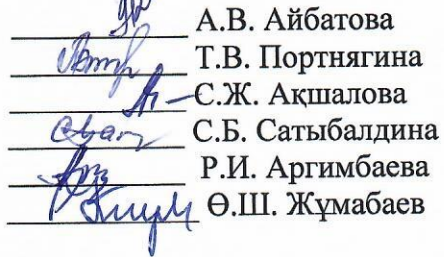 А.В. Айбатова
Т.В. Портнягина
С.Ж. Ақшалова
С.Б. Сатыбалдина
Р.И. Аргимбаева
Ө.Ш. Жұмабаев